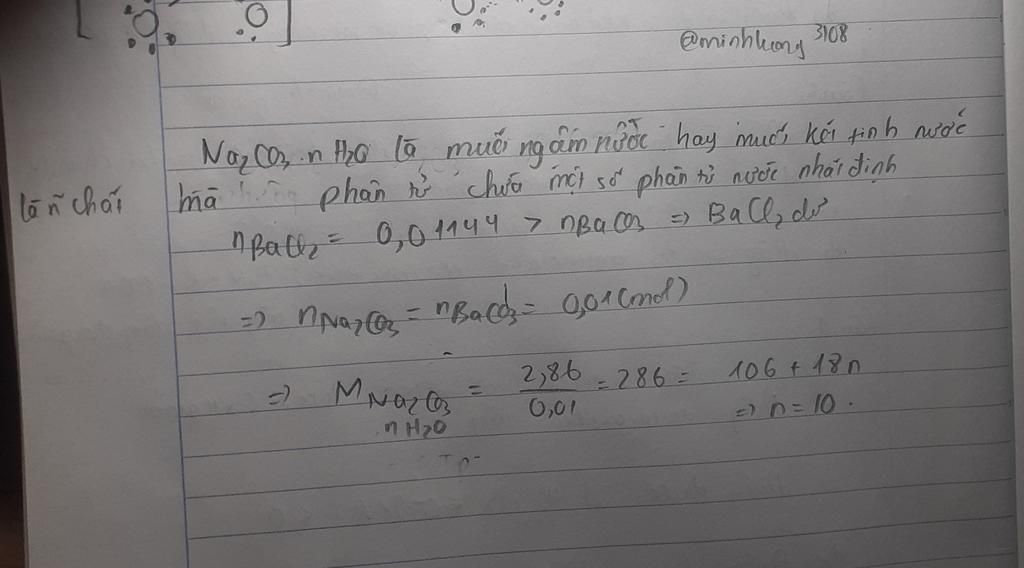 @minhluong 3108
Na2CO3.nH2O là muối ngậm nước hay muối kết tinh nước
lần chất mà phân tử chứa một số phân tử nước nhất định
nBaCl2 = 0,01144 > nBaCO3 => BaCl2 dư
=> nNa2CO3 = nBaCO3↓ = 0,01 (mol)
=> M Na2CO3.nH2O = 2,86/0,01 = 286 = 106 + 18n
=> n = 10.